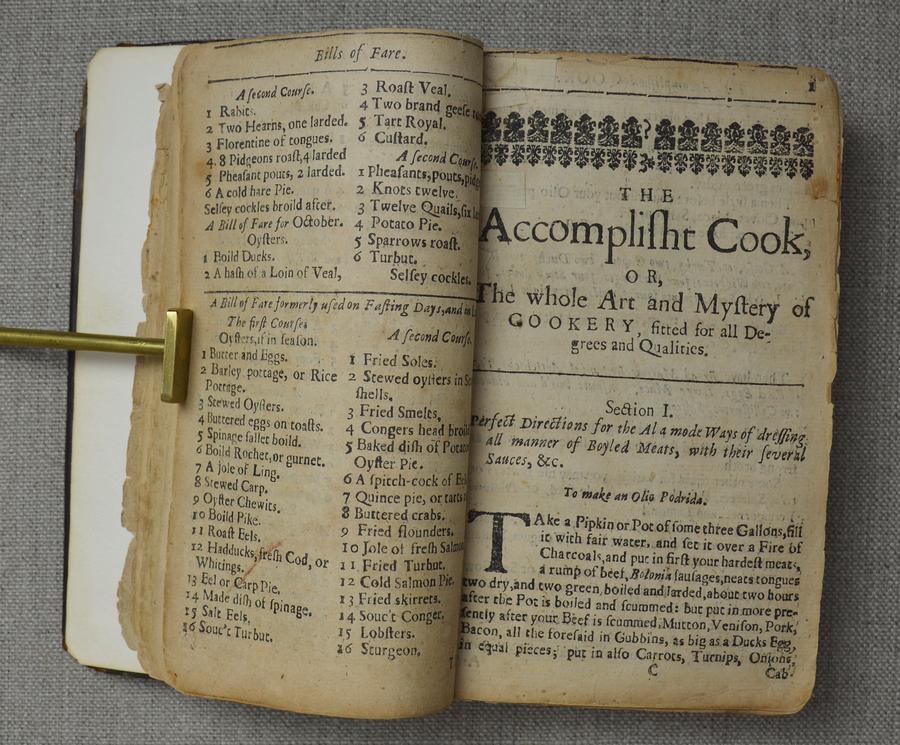 Bills of Fare.
A second Course.
1 Rabits.
2 Two Hearns, one larded.
3 Florentine of tongues.
4. 8 Pidgeons roast, 4 larded
5 Pheasant pouts, 2 larded.
6 A cold hare Pie.
Selsey cockles broild after.
A Bill of Fare for October.
Oysters.
1 Boild Ducks.
2 A hash of a Loin of Veal,
3 Roast Veal.
4 Two brand geese
5 Tart Royal.
6 Custard.
A second Course.
1 Pheasants, pouts,
2 Knots twelve.
3 Twelve Quails, six
4 Potato Pie.
5 Sparrows roast.
6 Turbut.
Selsey cockles.
A Bill of Fare formerly used on Fasting Days, and in
The first Course.
Oysters, if in season.
1 Butter and Eggs.
2 Barley pottage, or Rice
Pottage.
3 Stewed Oysters.
4 Buttered eggs on toasts.
5 Spinage sallet boild.
6 Boild Rochet, or gurnet.
7 A jole of Ling.
8 Stewed Carp.
9 Oyster Chewits.
10 Boild Pike.
11 Roast Eels.
12 Hadducks, fresh Cod, or
Whitings.
13 Eel or Carp Pie.
14 Made dish of spinage.
15 Salt Eels.
16 Souc't Turbut.
A second Course.
1 Fried Soles.
2 Stewed oysters in
shells.
3 Fried Smelts.
4 Congers head
5 Baked dish of
Oyster Pie.
6 A spitch-cock of
7 Quince pie, or tarts
8 Buttered crabs.
9 Fried flounders.
10 Jole of fresh Salmon
11 Fried Turbut.
12 Cold Salmon Pie.
13 Fried skirrets.
14 Souc't Conger.
15 Lobsters.
16 Sturgeon.
1
THE
Accomplisht Cook,
OR,
The whole Art and Mystery of
COOKERY, fitted for all De-
grees and Qualities.
Section I.
Perfect Directions for the Al a mode Ways of dressing
all manner of Boyled Meats, with their several
Sauces, &c.
To make an Olio Podrida.
TAke a Pipkin or Pot of some three Gallons, fill
it with fair water, and set it over a Fire of
Charcoals, and put in first your hardest meats,
a rump of beef, Bolonia sausages, neats tongues
two dry, and two green, boiled and larded, about two hours
after the Pot is boiled and scummed: but put in more pre-
sently after your Beef is scummed, Mutton, Venison, Pork,
Bacon, all the foresaid in Gubbins, as big as a Ducks Egg,
in equal pieces; put in also Carrots, Turnips, Onions,
C
Cab-